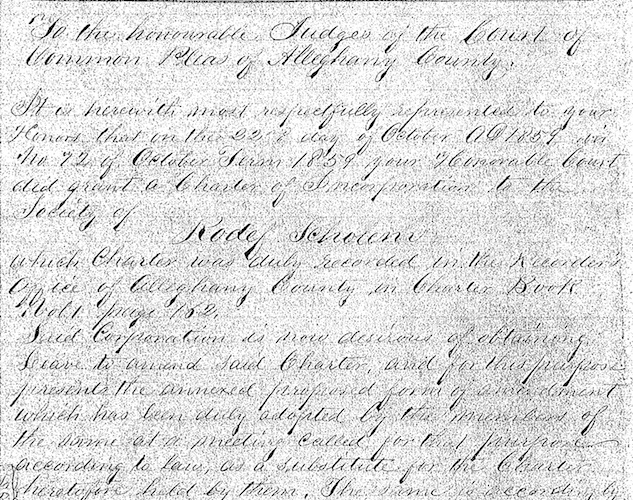 To the honourable Judges of the Court of
Common Pleas of Alleghany County.
It is herewith most respectfully represented to your
Honors, that on the 22d day of October AD 1859
No 72 of October Term 1859 your Honorable Court
did grant a Charter of Incorporation to the
Society of
Rodef Scholem
which Charter was duly recorded in the Recorders
Office of Alleghany County in Charter Book
Vol 1 page 152.
Said Corporation is now desirous of obtaining
leave to amend said Charter, and for this purpose
presents the annexed proposed form of amendment
which has been duly adopted by the members of
the same at a meeting called for that purpose
according to law, as a substitute for the Charter
heretofore held by them. The same is accordingly